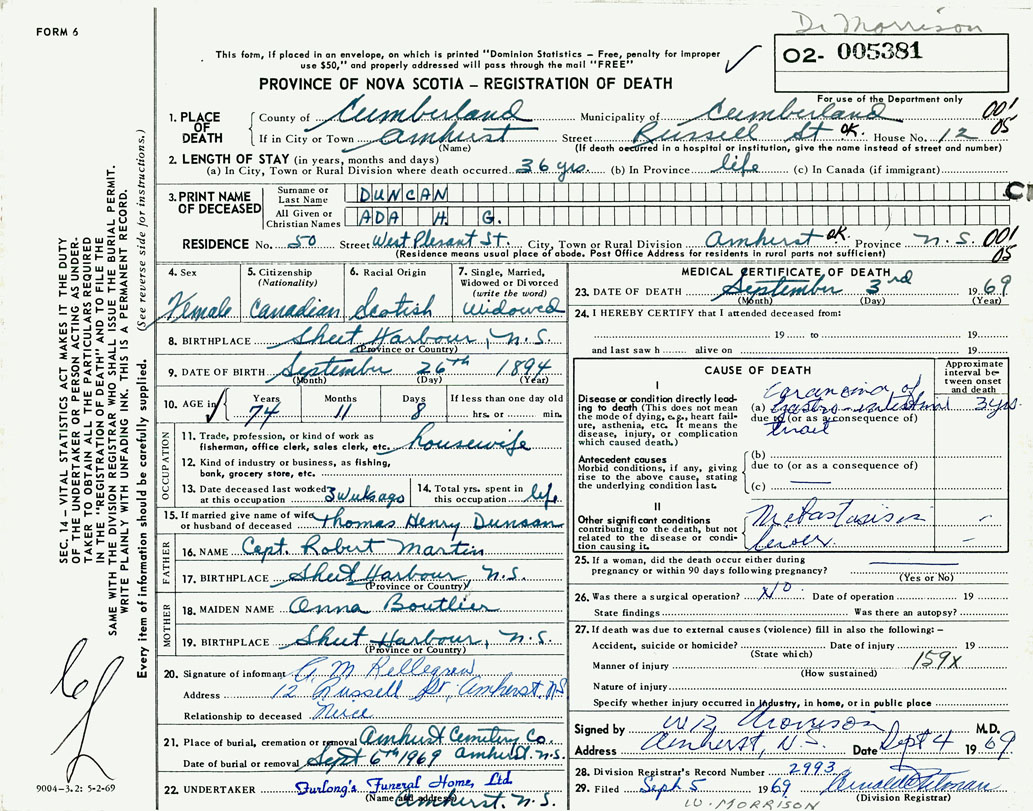 Dr Morrison
FORM 6
This form, if placed in an envelope, on which is printed "Dominion Statistics – Free, penalty for improper
use $50," and properly addressed will pass through the mail "FREE"
02- 005381
For use of the Department only
PROVINCE OF NOVA SCOTIA – REGISTRATION OF DEATH
1. PLACE OF DEATH County of Cumberland Municipality of Cumberland 001
If in City or Town Amhurst Street Russell St OK. House No. 12 05
(Name) (If death occurred in a hospital or institution, give the name instead of street and number)
2. LENGTH OF STAY (in years, months and days)
(a) In City, Town or Rural Division where death occurred 36 yrs. (b) In Province life (c) In Canada (if immigrant)
3. PRINT NAME OF DECEASED Surname or Last Name DUNCAN
All Given or Christian Names ADA H G.
RESIDENCE No. 50 Street West Plesant St. City, Town or Rural Division Amhurst OK. Province N.S. 001
(Residence means usual place of abode. Post Office Address for residents in rural parts not sufficient) 05
4. Sex Female
5. Citizenship (Nationality) Canadian
6. Racial Origin Scotish
7. Single, Married, Widowed or Divorced (write the word) Widowed
8. BIRTHPLACE Sheet Harbour, N.S.
(Province or Country)
9. DATE OF BIRTH September 26th 1894
(Month) (Day) (Year)
10. AGE in Years 74 Months 11 Days 8 If less than one day old hrs. or min.
OCCUPATION
11. Trade, profession, or kind of work as
fisherman, office clerk, sales clerk, etc. housewife
12. Kind of industry or business, as fishing,
bank, grocery store, etc.
13. Date deceased last worked at this occupation 3 wuks ago
14. Total yrs. spent in this occupation life
15. If married give name of wife or husband of deceased Thomas Henry Duncan
FATHER
16. NAME Capt. Robert Martin
17. BIRTHPLACE Sheet Harbour, N.S.
(Province or Country)
MOTHER
18. MAIDEN NAME Anna Boutlier
19. BIRTHPLACE Sheet Harbour, N.S.
(Province or Country)
20. Signature of informant
Address 12 Russell St, Amherst, NS
Relationship to deceased Niece
21. Place of burial, cremation or removal Amhurst Cemetery Co
Date of burial or removal Sept 6th 1969 Amherst. N.S.
22. UNDERTAKER Furlong's Funeral Home, Ltd
(Name and address) Amhurst, N. S.
MEDICAL CERTIFICATE OF DEATH
23. DATE OF DEATH September 3rd 1969
(Month) (Day) (Year)
24. I HEREBY CERTIFY that I attended deceased from:
19 to 19
and last saw h alive on 19
CAUSE OF DEATH
Approximate interval between onset and death
I
Disease or condition directly leading to death (This does not mean the mode of dying, e.g., heart failure, asthenia, etc. It means the disease, injury, or complication which caused death.)
(a) Carancina of gastro-intestinal 3 yrs.
due to (or as a consequence of)
Antecedent causes
Morbid conditions, if any, giving rise to the above cause, stating the underlying condition last.
(b)
due to (or as a consequence of)
(c)
II
Other significant conditions contributing to the death, but not related to the disease or condition causing it.
Metastasis in
25. If a woman, did the death occur either during
pregnancy or within 90 days following pregnancy?
(Yes or No)
26. Was there a surgical operation? No Date of operation 19
State findings Was there an autopsy?
27. If death was due to external causes (violence) fill in also the following: –
Accident, suicide or homicide? Date of injury 19
(State which)
Manner of injury 159X
(How sustained)
Nature of injury
Specify whether injury occurred in industry, in home, or in public place
Signed by W.R. Morrison M.D.
Address Amherst, N.S. Date Sept 4 1969
28. Division Registrar's Record Number 2993
29. Filed Sept 5 1969
(Division Registrar)
W. MORRISON
SEC. 14 – VITAL STATISTICS ACT MAKES IT THE DUTY
OF THE UNDERTAKER OR PERSON ACTING AS UNDERTAKER
TO OBTAIN ALL THE PARTICULARS REQUIRED
IN THE "REGISTRATION OF DEATH" AND TO FILE THE
SAME WITH THE DIVISION REGISTRAR WHO SHALL ISSUE THE BURIAL PERMIT.
WRITE PLAINLY WITH UNFADING INK. THIS IS A PERMANENT RECORD.
Every item of information should be carefully supplied. (See reverse side for instructions.)
9004-3.2: 5-2-69